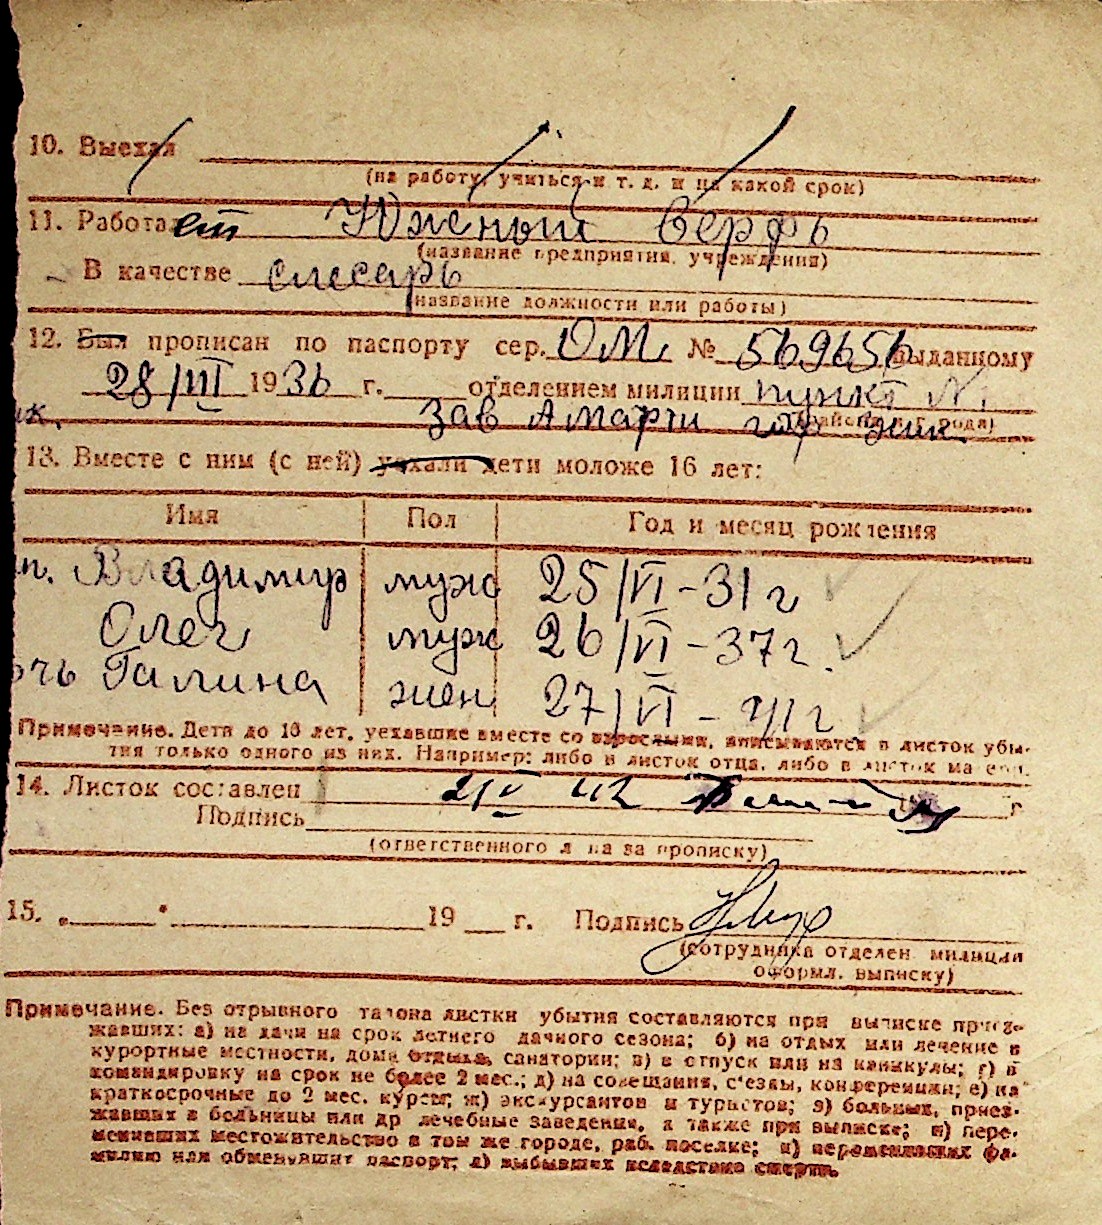 10. Выехал
(на работу, учиться и т. д. и на какой срок)
11. Работает Южный верфь
(название предприятия, учреждения)
В качестве слесарь
(название должности или работы)
12. Был прописан по паспорту сер. ОМ. № 569656 выданному
28/VII 1936 г. отделением милиции пункт №
(района, города)
зав А Марти гор Ник
13. Вместе с ним (с ней) уехали дети моложе 16 лет:
Имя Пол Год и месяц рождения
Владимир муж 25/VI-31г
Олег муж 26/VI-37г.
Галина жен 27/VI-41г
Примечание. Дети до 16 лет, уехавшие вместе со взрослыми, вписываются в листок убы-
тия только одного из них. Например: либо в листок отца, либо в листок матери.
14. Листок составлен 2/V 42 г.
Подпись
(ответственного лица за прописку)
15. „ “ 19 г. Подпись
(сотрудника отделен. милиции
оформл. выписку)
Примечание. Без отрывного талона листки убытия составляются при выписке приез-
жавших: а) на дачи на срок летнего дачного сезона; б) на отдых или лечение в
курортные местности, дома отдыха, санатории; в) в отпуск или на каникулы; г) в
командировку на срок не более 2 мес.; д) на совещания, с'езды, конференции; е) на
краткосрочные до 2 мес. курсы; ж) экскурсантов и туристов; з) больных, приез-
жавших в больницы или др лечебные заведения, а также при выписке; и) пере-
менивших местожительство в том же городе, раб. поселке; к) переменивших фа-
милию или обменувших паспорт; л) выбывших вследствие смерти.